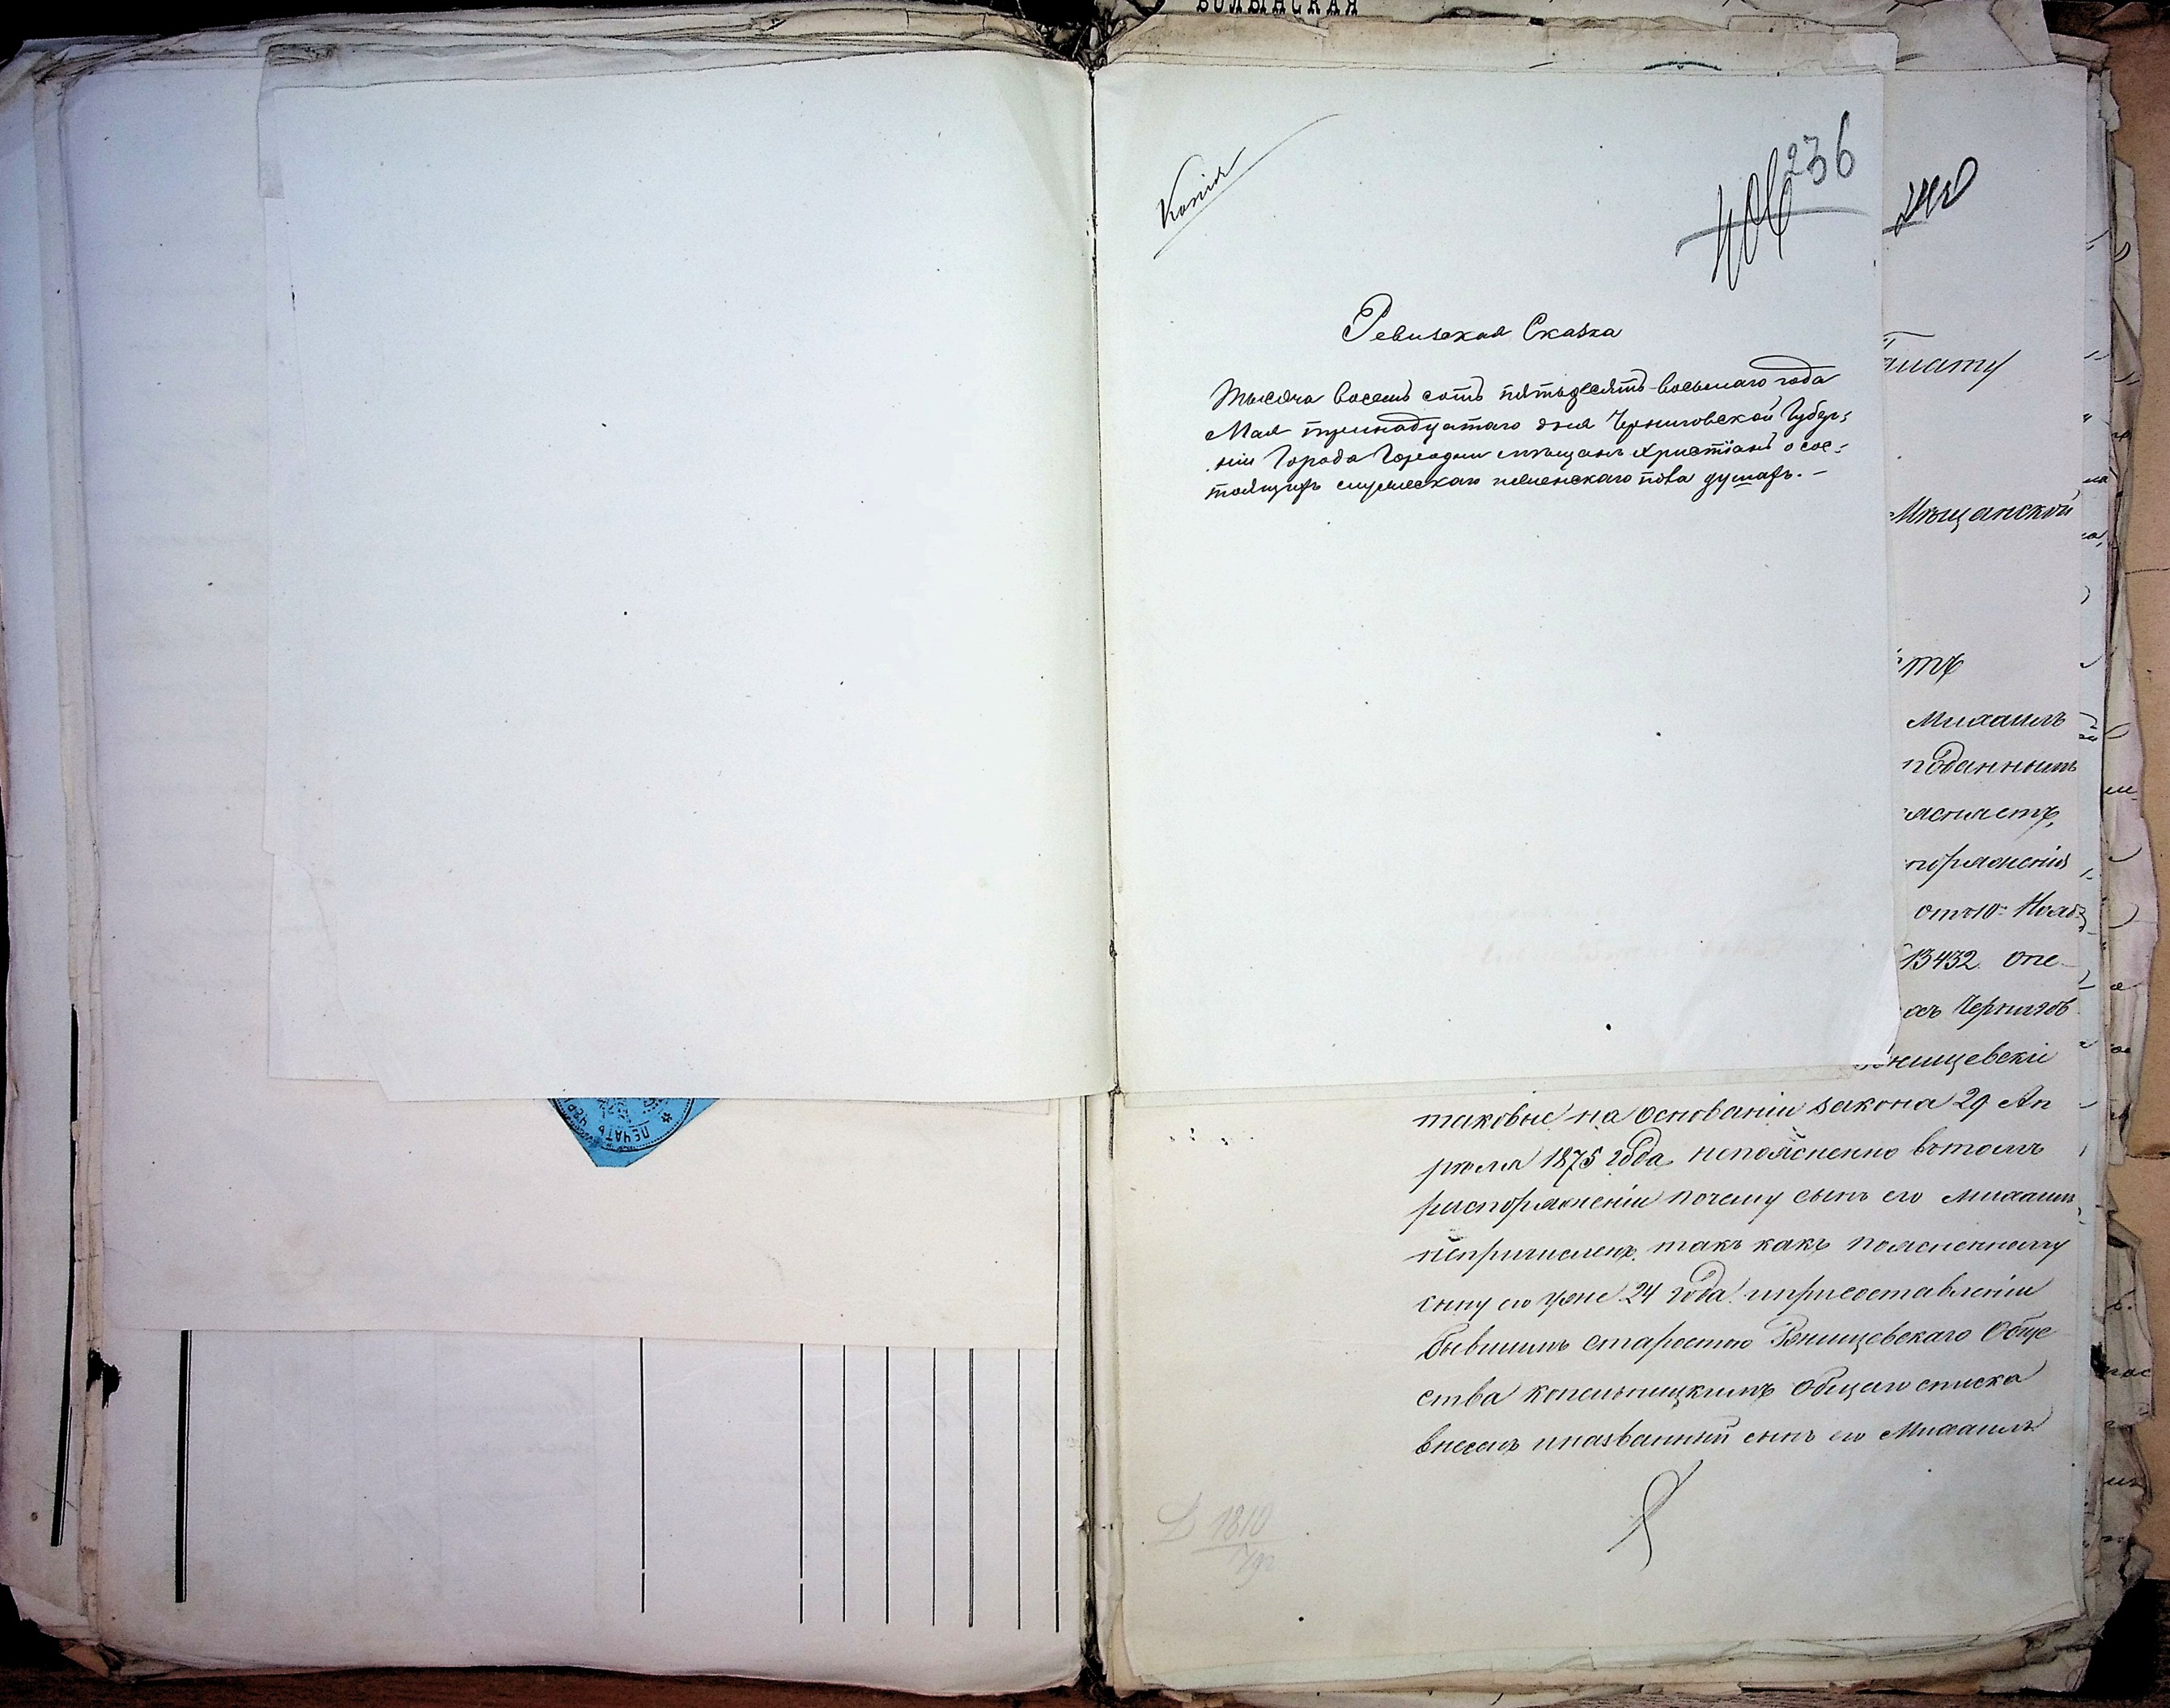 ВОЛЫНСКАЯ
Копія
236
406
Ревизская Сказка
Тысяча восемь сотъ пятьдесятъ восьмаго года
Мая тринадцатаго дня Черниговской Губер:
ніи Города Городни мѣщанъ Христіанъ о сос:
тоящихъ мужескаго женскаго пола душахъ. —
240
алату
Мѣщанской
Михаилъ
поданнымъ
ясняетъ,
поряженія
отъ 10: Нояб
13432 опе
ахъ Чернигов
нищевскіи
таковые на основаніи закона 29 Ап
рѣля 1875 года, непояснено втомъ
распоряженіи почему сынъ его Михаилъ
непричисленъ, такъ какъ поясненному
сыну его уже 24 года. иприсоставленіи
бывшимъ старостою Обще
ства общаго списка
внесенъ иназванный сынъ его Михаилъ
1810
ПЕЧАТЬ